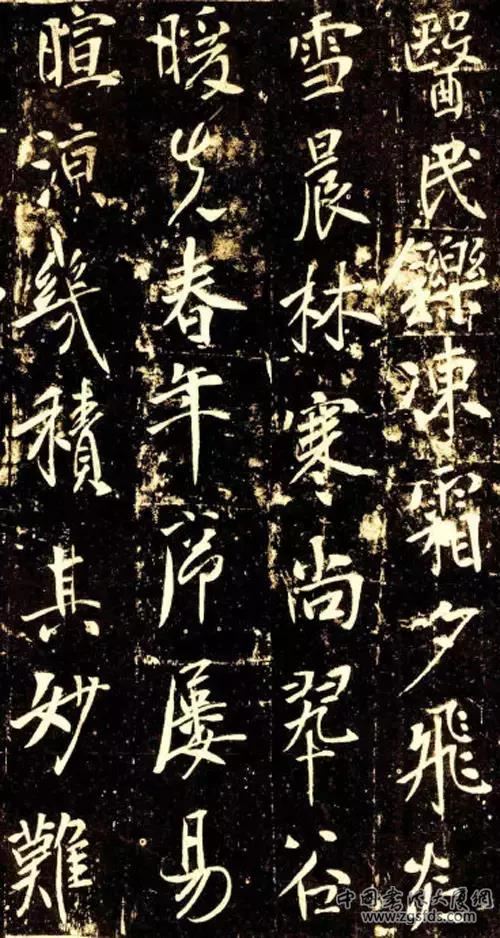 醫民鑠凍霜夕飛炎
雪晨林寒尚翠谷
暖先春年屢易
暄涼幾積其妙難
中国书法大展网
www.zgsids.com